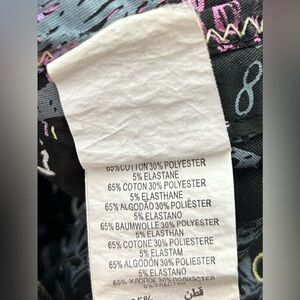 65%COTTON 30% POLYESTER
5% ELASTANE
65% COTON 30% POLYESTER
5% ELASTHANE
65% ALGODÃO 30% POLIÉSTER
5% ELASTANO
65% BAUMWOLLE 30% POLYESTER
5% ELASTHAN
65% COTONE 30% POLIESTERE
5% ELASTAM
65% ALGODÓN 30% POLIÉSTER
5% ELASTANO
65% ХЛОПОК 30% ПОЛИЭСТЕР
قطن
8